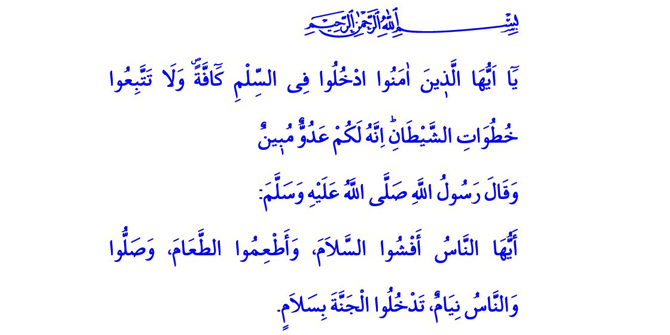 بِسْمِ اللّٰهِ الرَّحْمٰنِ الرَّحِيمِ
يَٓا اَيُّهَا الَّذ۪ينَ اٰمَنُوا ادْخُلُوا فِى السِّلْمِ كَٓافَّةًۖ وَلَا تَتَّبِعُوا
خُطُوَاتِ الشَّيْطَانِۜ اِنَّهُ لَكُمْ عَدُوٌّ مُب۪ينٌ
وَقَالَ رَسُولُ اللَّهِ صَلَّى اللَّهُ عَلَيْهِ وَسَلَّمَ:
أَيُّهَا النَّاسُ أَفْشُوا السَّلاَمَ، وَأَطْعِمُوا الطَّعَامَ، وَصَلُّوا
وَالنَّاسُ نِيَامٌ، تَدْخُلُوا الْجَنَّةَ بِسَلاَمٍ.